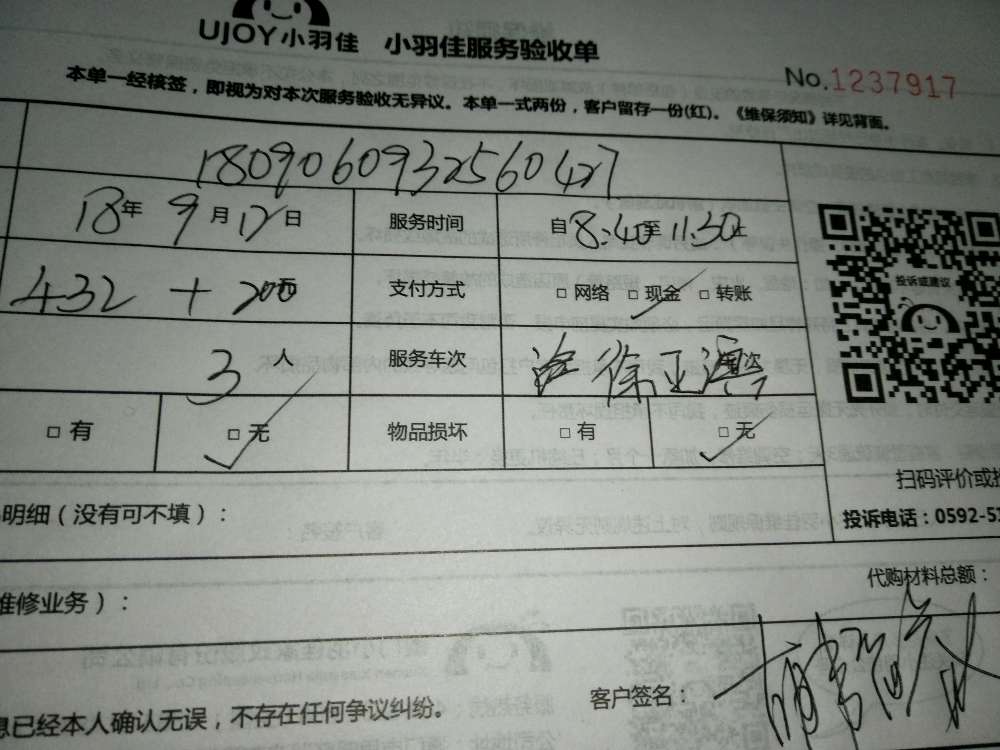 UJOY小羽佳 小羽佳服务验收单
No.1237917
本单一经核签，即视为对本次服务验收无异议。本单一式两份，客户留存一份(红)。《维保须知》详见背面。
18090609332560427
18年 9月12日 服务时间 自8:40至11:30止
432 + 200元 支付方式 □ 网络 □ 现金 □ 转账
投诉或建议
3人 服务车次 徐亚
□ 有 □ 无 物品损坏 □ 有 □ 无
扫码评价或
明细（没有可不填）：
投诉电话：0592-5
代购材料总额：
维修业务）：
客户签名：
息已经本人确认无误，不存在任何争议纠纷。